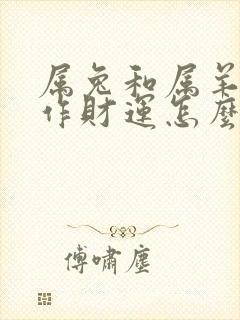 属兔和属羊
作财运怎麼
傅啸尘